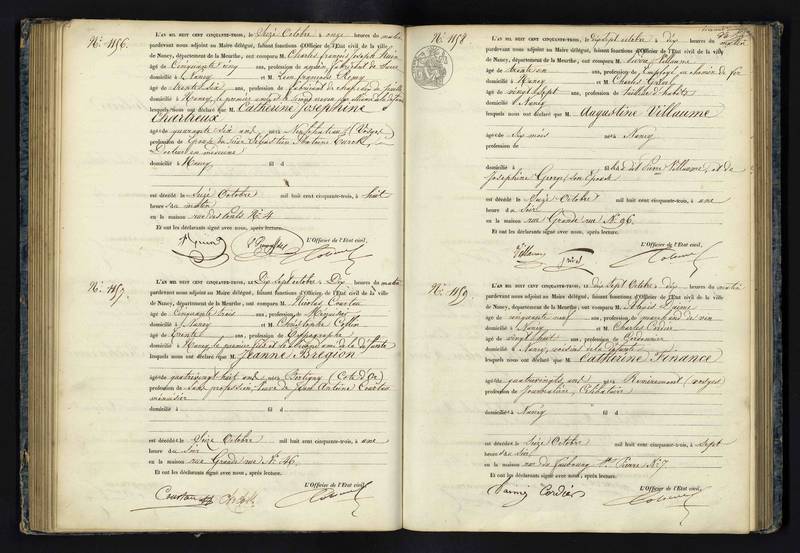 No. 1156.
L'AN MIL HUIT CENT CINQUANTE-TROIS, le Seize Octobre à onze heures du matin
pardevant nous adjoint au Maire délégué, faisant fonctions d'Officier de l'Etat civil de la ville
de Nancy, département de la Meurthe, ont comparu M. Charles françois Joseph
âgé de Cinquante ans, profession de ancien fabricant de
domicilié à Nancy et M. Jean françois Remy
âgé de trente six ans, profession de fabricant de chapeaux de paille
domicilié à Nancy, le premier et le second
lesquels nous ont déclaré que M. Catherine Josephine
Chartreux
âgée de quarante six ans née à Neufchateau (Vosges)
profession de Epouse du sieur Sébastien Antoine
Docteur en médecine
domicilié à Nancy fil d
est décédée le Seize Octobre mil huit cent cinquante-trois, à huit
heure du matin
en la maison rue des N.o 4
Et ont les déclarants signé avec nous, après lecture.
L'Officier de l'Etat civil,
No. 1157.
L'AN MIL HUIT CENT CINQUANTE-TROIS, le Dix sept octobre à Dix heures du matin
pardevant nous adjoint au Maire délégué, faisant fonctions d'Officier de l'Etat civil de la ville
de Nancy, département de la Meurthe, ont comparu M. Nicolas
âgé de Cinquante trois ans, profession de Menuisier
domicilié à Nancy et M. Christophe Collin
âgé de trente ans, profession de Typographe
domicilié à Nancy, le premier fils et le second ami de la défunte
lesquels nous ont déclaré que M. Jeanne Brégion
âgée de quatrevingt huit ans née à (Côte d'Or)
profession de sans profession, Veuve de Jean Antoine
menuisier
domicilié à fil d
est décédée le Seize Octobre mil huit cent cinquante-trois, à une
heure du soir
en la maison rue Grande rue N.o 46.
Et ont les déclarants signé avec nous, après lecture.
L'Officier de l'Etat civil,
No. 1158.
L'AN MIL HUIT CENT CINQUANTE-TROIS, le Dix sept octobre à dix heures du matin
pardevant nous adjoint au Maire délégué, faisant fonctions d'Officier de l'Etat civil de la ville
de Nancy, département de la Meurthe, ont comparu M. Villaume
âgé de trente un ans, profession de Employé au chemin de fer
domicilié à Nancy et M. Charles
âgé de vingt sept ans, profession de tailleur d'habits
domicilié à Nancy
lesquels nous ont déclaré que M. Augustine Villaume
âgée de Six mois née à Nancy
profession de
domicilié à fille du dit Villaume, et de
Josephine Georges son Epouse
est décédée le Seize Octobre mil huit cent cinquante-trois, à une
heure du soir
en la maison rue Grande rue N.o 96.
Et ont les déclarants signé avec nous, après lecture.
L'Officier de l'Etat civil,
Villaume
No. 1159.
L'AN MIL HUIT CENT CINQUANTE-TROIS, le Dix Sept Octobre à dix heures du matin
pardevant nous adjoint au Maire délégué, faisant fonctions d'Officier de l'Etat civil de la ville
de Nancy, département de la Meurthe, ont comparu M.
âgé de cinquante neuf ans, profession de marchand de vin
domicilié à Nancy et M. Charles Cordier
âgé de vingt huit ans, profession de Cordonnier
domicilié à Nancy, voisins de la défunte
lesquels nous ont déclaré que M. Catherine Finance
âgée de quatrevingts ans née à Remiremont (Vosges)
profession de Journalière, Célibataire
domicilié à Nancy fil d
est décédée le Seize Octobre mil huit cent cinquante-trois, à sept
heure du soir
en la maison rue du faubourg St. Pierre N.o 7.
Et ont les déclarants signé avec nous, après lecture.
L'Officier de l'Etat civil,
Cordier